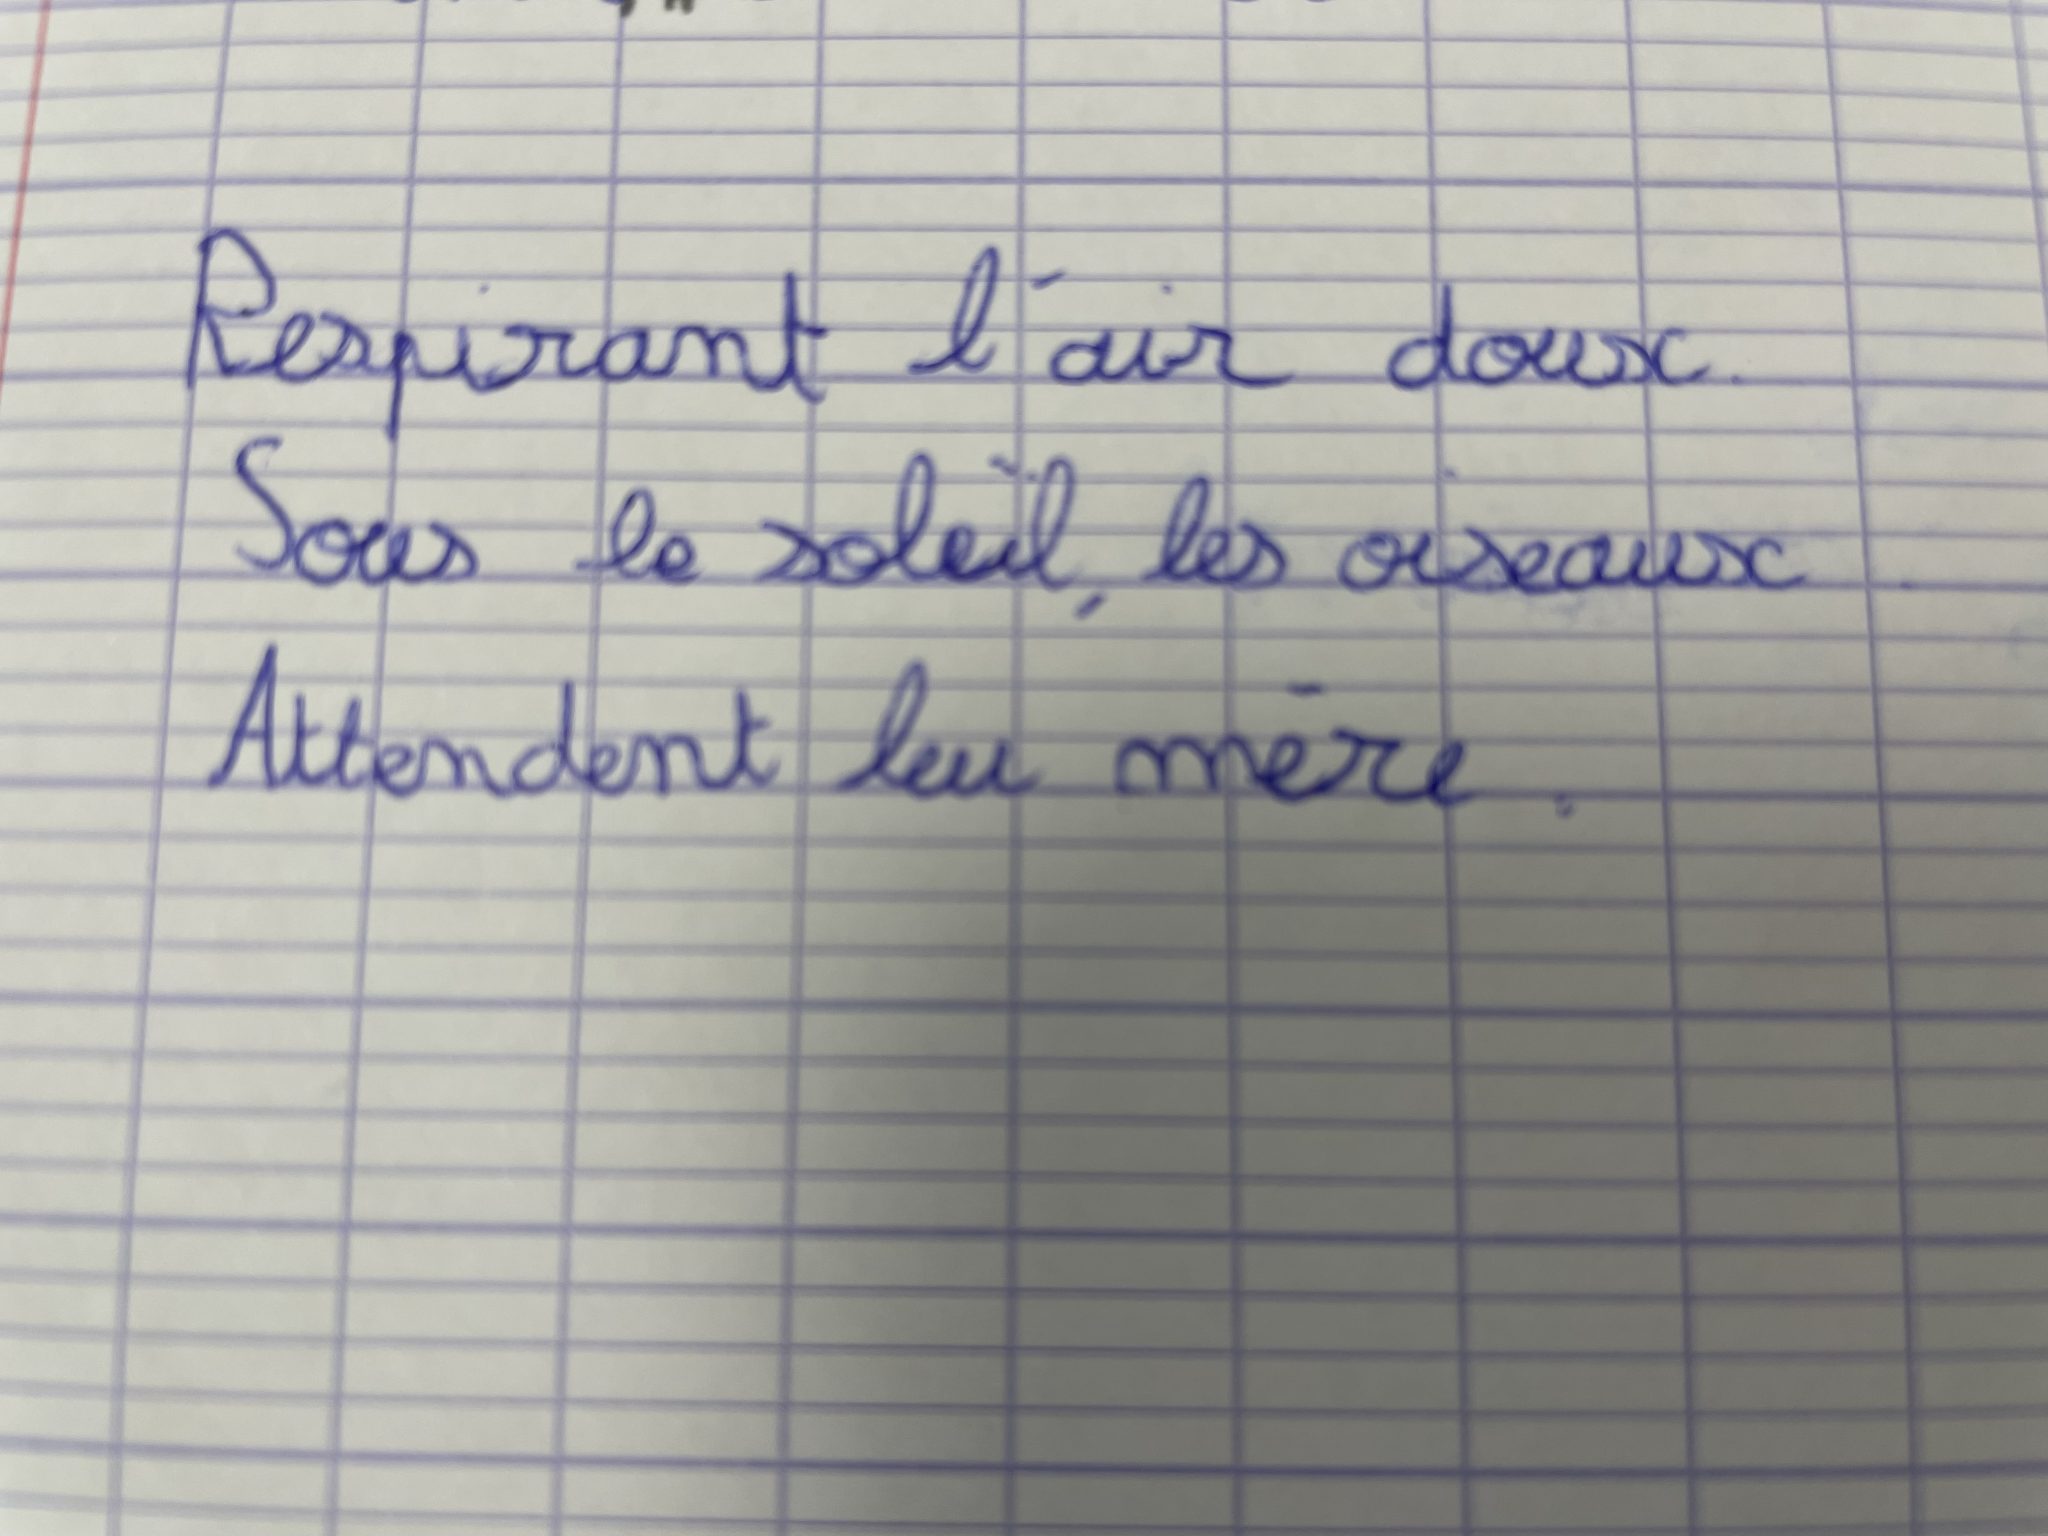 Respirant l'air doux.
Sous le soleil, les oiseaux
Attendent leu mère.